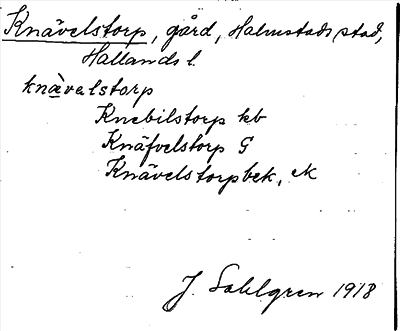 Knävelstorp, gård, Halmstads stad,
Hallands l.
knävelstorp
Knebilstorp kb
Knäfvelstorp G
Knävelstorpbek, eK
J. Sahlgren 1918